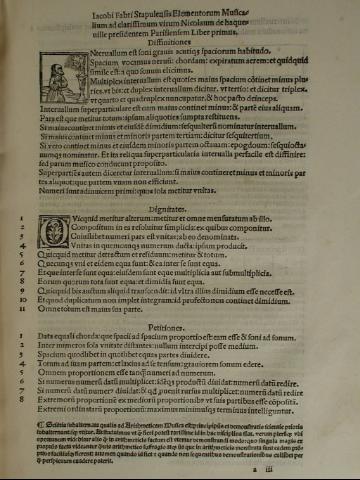 Iacobi Fabri Stapulensis Elementorum Musica-
lium ad clarissimum virum Nicolaum de haque-
uille presidentem Parisiensem Liber primus.
Diffinitiones
INteruallum est soni grauis acutiq3 spaciorum habitudo.
Spacium vocamus neruũ: chordam: expiratum aerem: et quidquid
simile est: a quo sonum elicimus.
Multiplex interuallum est quoties maius spacium cõtinet minus plu-
ries. vt bis: et duplex interuallum dicitur. vt ter so: et dicitur triplex.
vt quarto et quadruplex nuncupatur. & hoc pacto deinceps.
Interuallum superparticulare est cum maius continet minus: & partẽ eius aliquam.
Pars est que metitur totum: ipsum aliquoties sumpta restituens.
Si maius continet minus et eius dem dimidium: sesquialterũ nominatur interuallum.
Si maius continet minus et minoris partem tertiam: dicitur sesquitertium.
Si vero continet minus et eiusdem minoris partem octauam: epogdoum: sesquiocta-
uumq3 nominatur. Et in reliqua superparticularia interualla perfacile est diffinire:
sed parum musico conducunt proposito.
Superpartiẽs autem diceretur interuallum: si maius contineret minus et minoris par
tes aliquot: que partem vnam non efficiant.
Numeri sunt adinuicem primi: quos sola metitur vnitas.
Dignitates.
1 QVicquid metitur alterum: metitur et omne mensuratum ab illo.
2 Compositum in ea resoluitur simplicia: ex quibus componitur.
3 Cuiuslibet numeri pars est vnitas: ab eo denominata.
4 Vnitas in quemcunq3 numerum ducta: ipsum producit.
5 Quicquid metitur detractum et residuum: metitur & totum.
6 Quecunq3 vni et eidem equa sunt: & ea inter se sunt equa.
7 Et que inter se sunt equa: eiusdem sunt eque multiplicia aut submultiplicia.
8 Eorum quorum tota sunt equa: et dimidia sunt equa.
9 Quicquid bis auctum aliquid transcendit: id vltra illius dimidium esse necesse est.
10 Et quod duplicatum non implet integrum: id profecto non continet dimidium.
11 Omne totum est maius sua parte.
Petitiones.
1 Data equali chorda: que spacii ad spacium proportio est: eam esse & soni ad sonum.
2 Inter numeros sola vnitate distantes: nullum intercipi posse medium.
3 Spacium quodlibet in quotlibet equas partes diuidere.
4 Totum ad suam partem: et laxius ad se tensum: grauiorem sonum edere.
5 Omnem proportionem esse tanq̃ numeri ad numerum.
6 Si numerus numerũ datũ multiplicet: idẽq3 productũ diuidat: numerũ datũ redire.
7 Si numerus numerũ datũ diuidat: & qd̃ euenit rursus multiplicet: numerũ datũ redire
8 Extremorũ proportionẽ ex mediorũ proportionibus vt suis partibus esse cõpositã.
Extremi ordinis tã proportionum: maximus minimusq3 terminus intelliguntur.
a iii